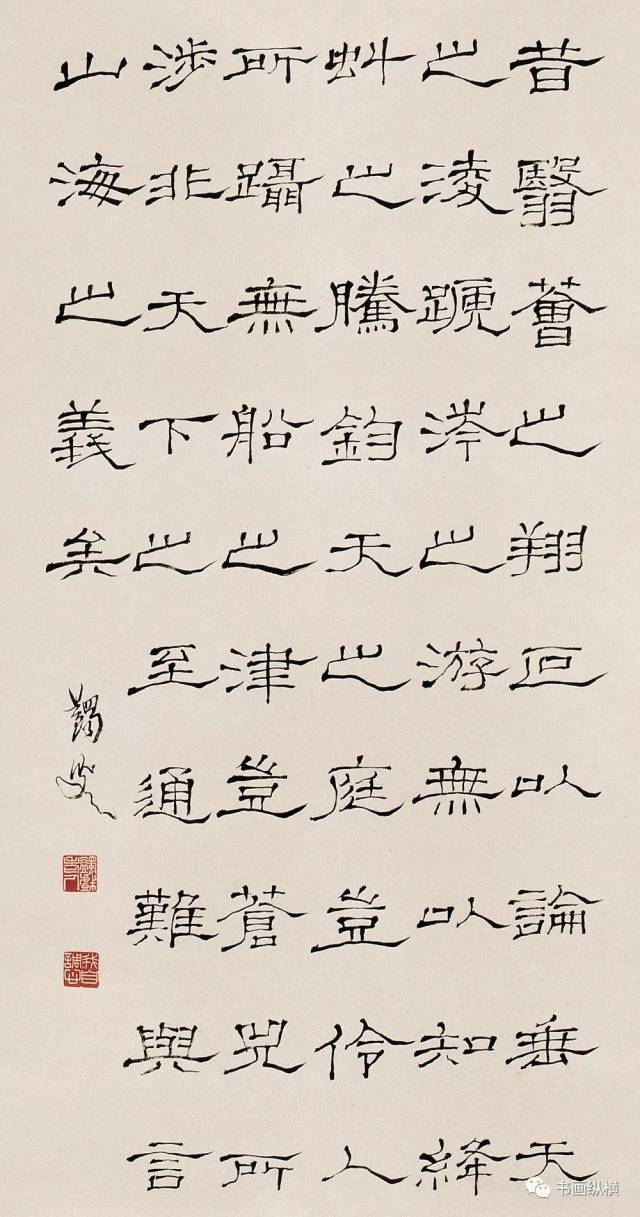 昔翳薈之翔叵以論垂天
之淩蹏涔之游無以知絳
虯之騰鈞天之庭豈伶人
所躡無船之津豈蒼兕所
涉非天下之至通難與言
山海之義矣
蠲叟
蠲戲老人
书画纵横